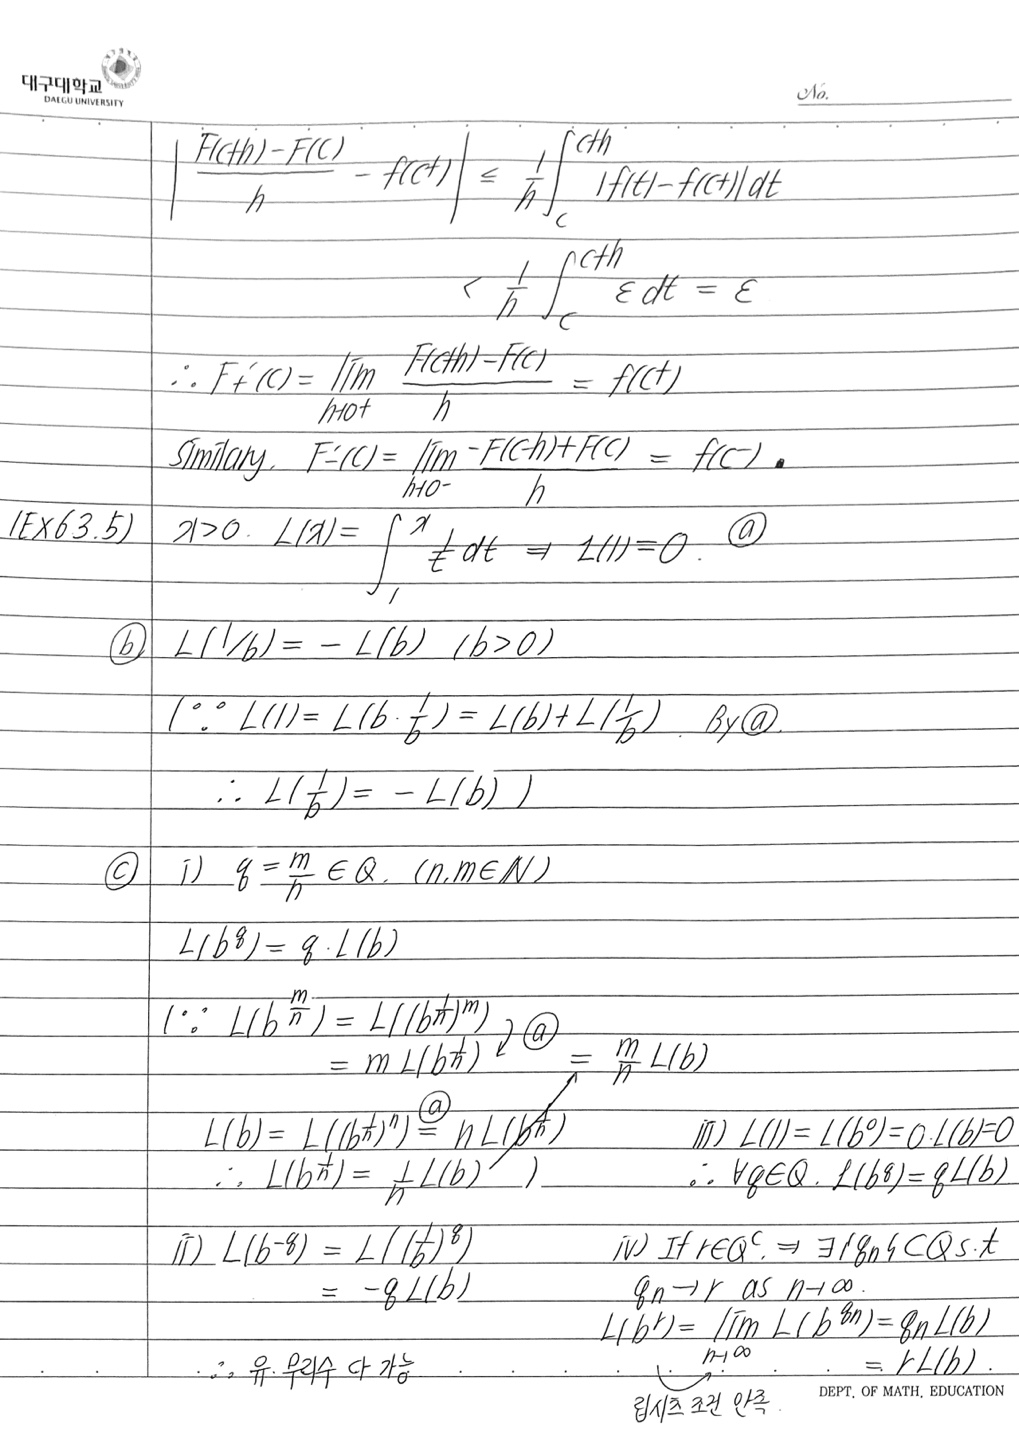 대구대학교
DAEGU UNIVERSITY
No.
| (F(c+h) - F(c))/h - f(c+) | ≤ 1/h ∫_c^{c+h} |f(t) - f(c+)| dt
< 1/h ∫_c^{c+h} ε dt = ε
∴ F+'(c) = lim_{h→0+} (F(c+h) - F(c))/h = f(c+)
Similary. F-'(c) = lim_{h→0-} (-F(c-h) + F(c))/h = f(c-) ▪
(EX63.5) x>0. L(x) = ∫_1^x 1/t dt ⇒ L(1)=0. ⓐ
ⓑ L(1/b) = - L(b) (b>0)
(∵ L(1) = L(b · 1/b) = L(b) + L(1/b). By ⓐ.
∴ L(1/b) = - L(b) )
ⓒ i) q = m/n ∈ Q. (n,m ∈ N)
L(b^q) = q · L(b)
(∵ L(b^{m/n}) = L((b^{1/n})^m)
= m L(b^{1/n}) ⓐ = m/n L(b)
L(b) = L((b^{1/n})^n) =ⓐ n L(b^{1/n})
∴ L(b^{1/n}) = 1/n L(b) )
ii) L(b^{-q}) = L((1/b)^q)
= -q L(b)
∴ 유·무리수 다 가능
iii) L(1) = L(b^0) = 0·L(b) = 0
∴ ∀q∈Q. L(b^q) = q L(b)
iv) If r∈Q^c. ⇒ ∃{q_n} ⊂ Q s.t
q_n → r as n→∞.
L(b^r) = lim_{n→∞} L(b^{q_n}) = q_n L(b)
= r L(b).
립시츠 조건 만족.
DEPT. OF MATH. EDUCATION